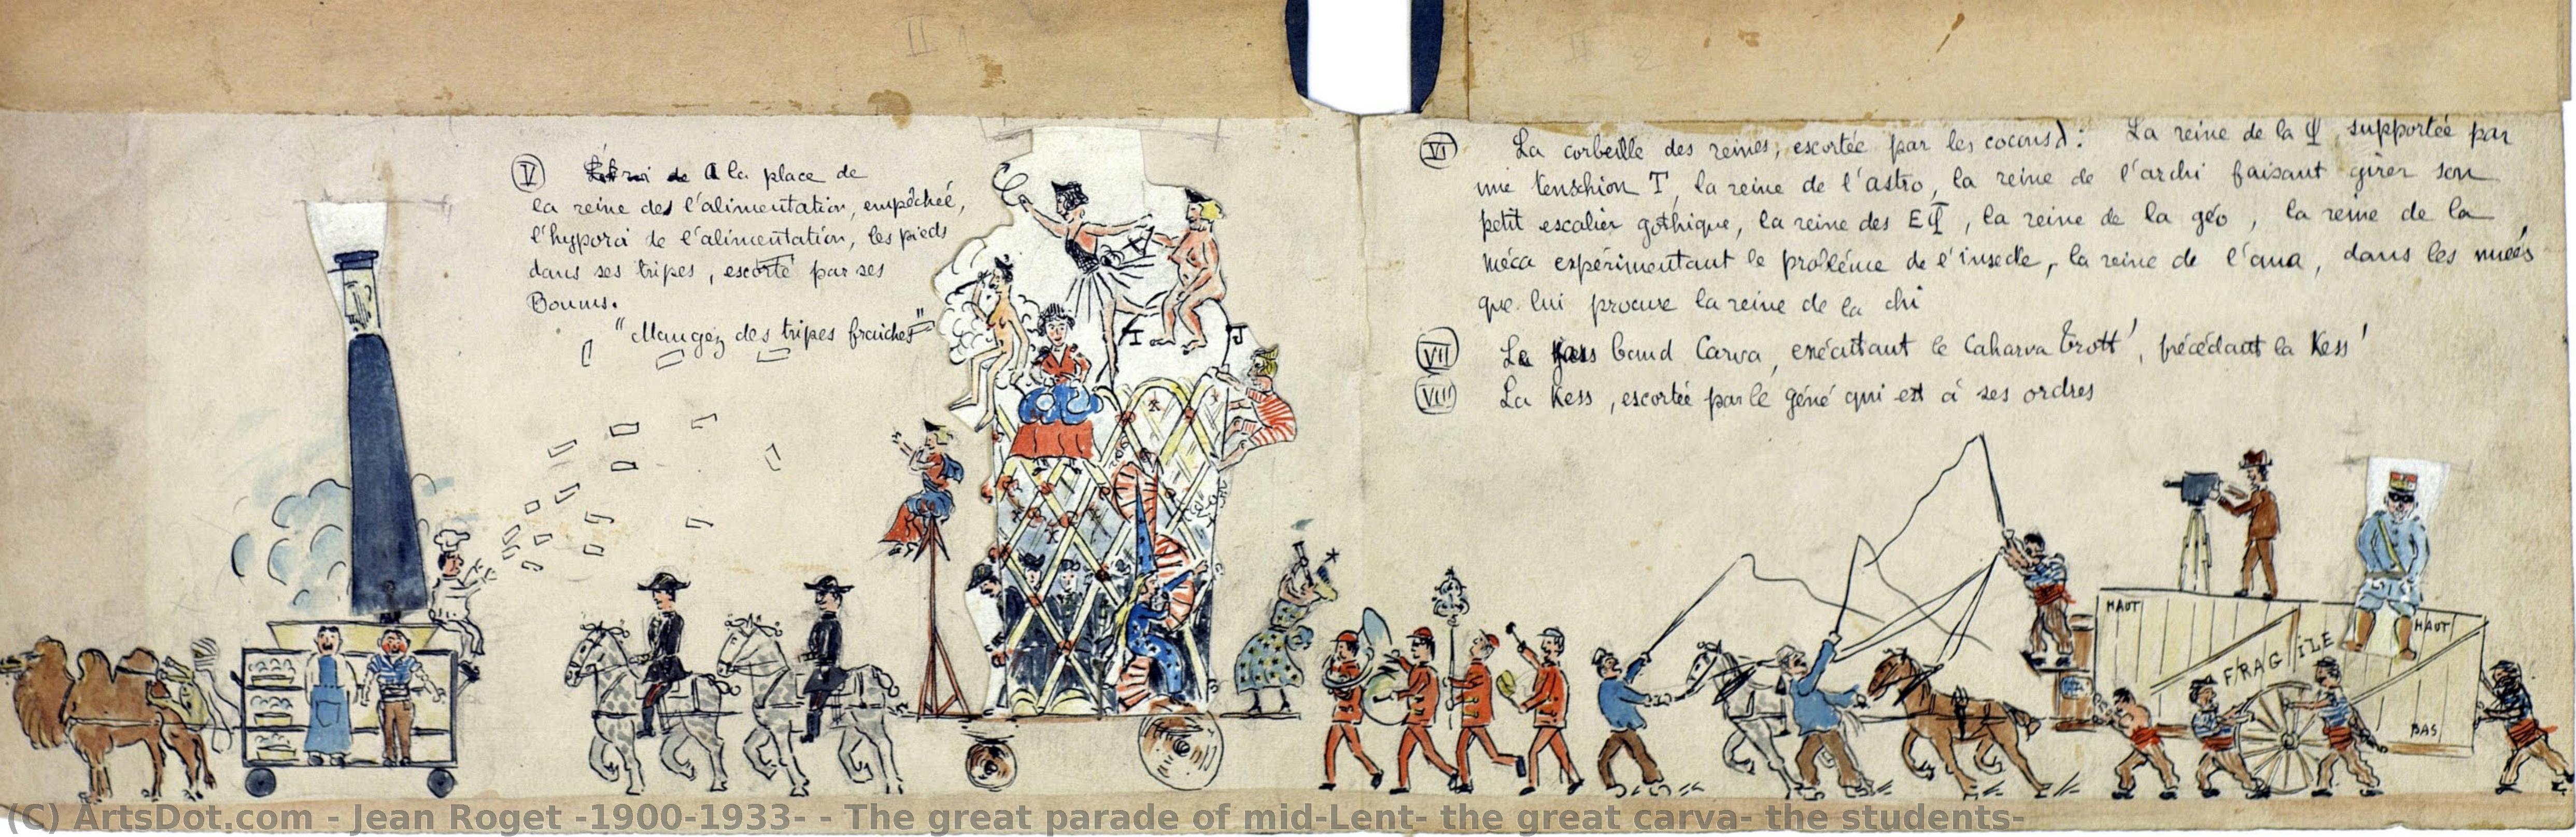 V à la place de
la reine des l'alimentation, empêchée,
l'hyporoi de l'alimentation, les pieds
dans ses tripes, escorté par ses
Boums.
"Mangez des tripes fraîches"
I J
VI La corbeille des reines, escortée par les cocons λ : La reine de la φ supportée par
une tenschion T, la reine de l'astro, la reine de l'archi faisant girer son
petit escalier gothique, la reine des EΦ, la reine de la géo, la reine de la
méca expérimentant le problème de l'insecte, la reine de l'ana, dans les nuées
que lui procure la reine de la chi
VII band Carva, exécutant le Caharva trott', précédant la Kess'
VIII La Kess, escortée par le géné qui est à ses ordres
HAUT
HAUT
FRAGILE
BAS
(C) ArtsDot.com - Jean Roget -1900-1933- - The great parade of mid-Lent- the great carva- the students-